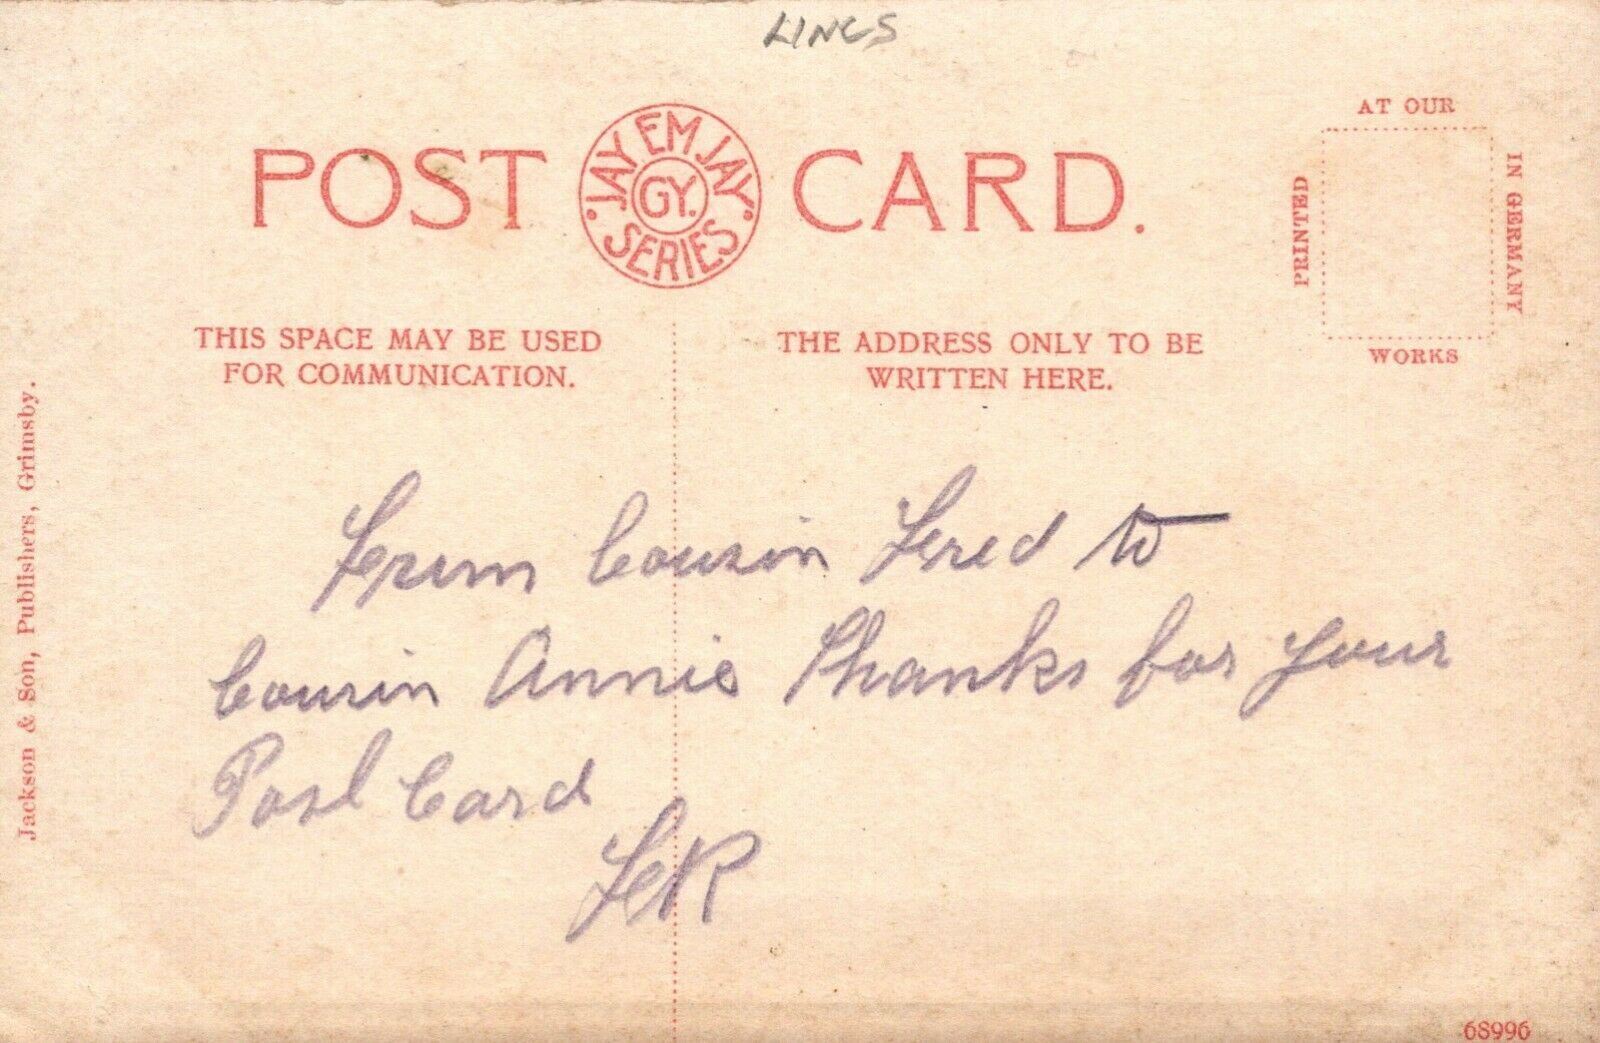 LINCS
POST CARD.
JAY EM JAY
GY.
SERIES
AT OUR
PRINTED
IN GERMANY
WORKS
THIS SPACE MAY BE USED
FOR COMMUNICATION.
THE ADDRESS ONLY TO BE
WRITTEN HERE.
Jackson & Son, Publishers, Grimsby.
From Cousin Fred to
Cousin Annie Thanks for your
Post Card
68996